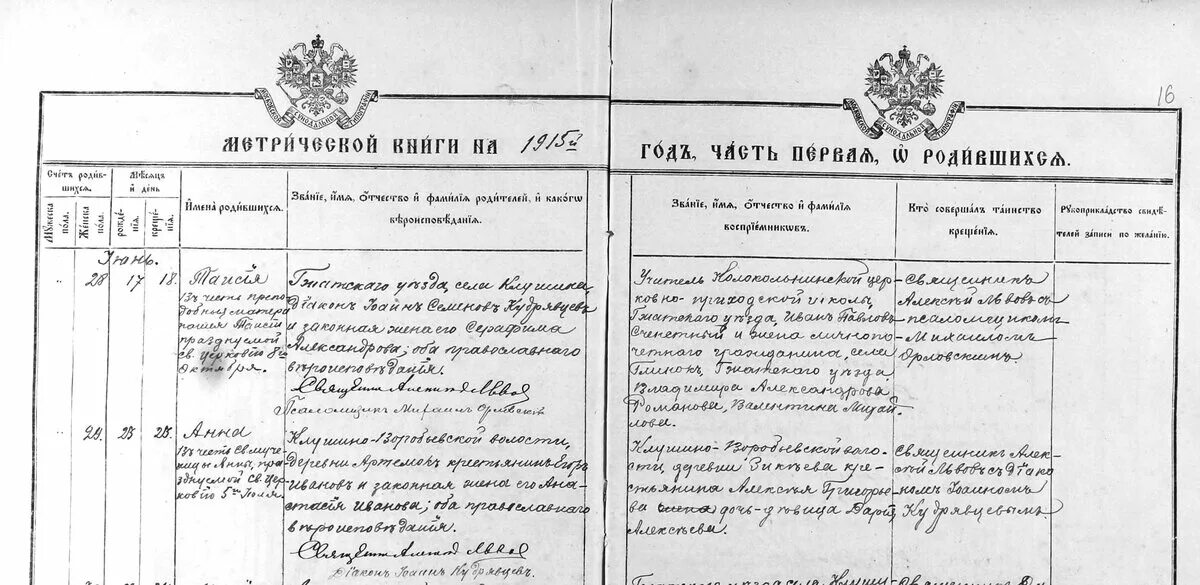 16
МОСКОВСКОЙ СѴНОДАЛЬНОЙ ТИПОГРАФІИ
МОСКОВСКОЙ СѴНОДАЛЬНОЙ ТИПОГРАФІИ
МЕТРИ́ЧЕСКОЙ КНИ́ГИ НА 1915й
ГО́ДЪ, ЧА́СТЬ ПЕ́РВАЯ, Ѡ РОДИ́ВШИХСЯ.
Сче́тъ роди́в-
шихся.
Мѣ́сяцъ
и́ де́нь
Му́жеска
по́ла.
Же́нска
по́ла.
рожде́-
нія.
креще́-
нія.
И́мена роди́вшихся.
Зва́ніе, и́мя, о́тчество и́ фами́лія роди́телей, и́ како́гѡ
вѣроисповѣ́данія.
Зва́ніе, и́мя, о́тчество и́ фами́лія
воспріе́мниковъ.
Кто̀ соверша́лъ та́инство
креще́нія.
Рукоприкла́дство свидѣ́-
телей за́писи по жела́нію.
Іюнь.
" 28 17 18.
Таисія
въ честь препо-
добныя матери
нашея Таисіи
празднуемой
св. церковію 8го
Октября.
Гжатскаго уѣзда, села Клушина
Діаконъ Іоаннъ Семеновъ Кудрявцевъ
и законная жена его Серафима
Александрова; оба православнаго
вѣроисповѣданія.
Священникъ Алексѣй Львовъ
Псаломщикъ Михаилъ Орловскій
Учитель Колокольнинской цер-
ковно-приходской школы
Гжатскаго уѣзда, Иванъ Павловъ
и жена лично по-
четнаго гражданина, села
Глинокъ, Гжатскаго уѣзда
Владимира Александрова
Романова, Валентина Михай-
лова.
Священникъ
Алексѣй Львовъ съ
псаломщикомъ
Михаиломъ
Орловскимъ
" 29. 23 23.
Анна
въ честь св. муче-
ницы Анны, пра-
зднуемой св. цер-
ковію 5го Іюля.
Клушино-Воробьевской волости,
деревни Артемокъ крестьянинъ Егоръ
Ивановъ и законная жена его Ана-
стасія Иванова; оба православнаго
вѣроисповѣданія.
Священникъ Алексѣй Львовъ
Діаконъ Іоаннъ Кудрявцевъ.
Клушино-Воробьевской воло-
сти, деревни Зикѣева кре-
стьянина Алексѣя Григорье-
ва жена дочь-дѣвица Дарія
Алексѣева.
Священникъ Алек-
сѣй Львовъ съ Діако-
номъ Іоанномъ
Кудрявцевымъ